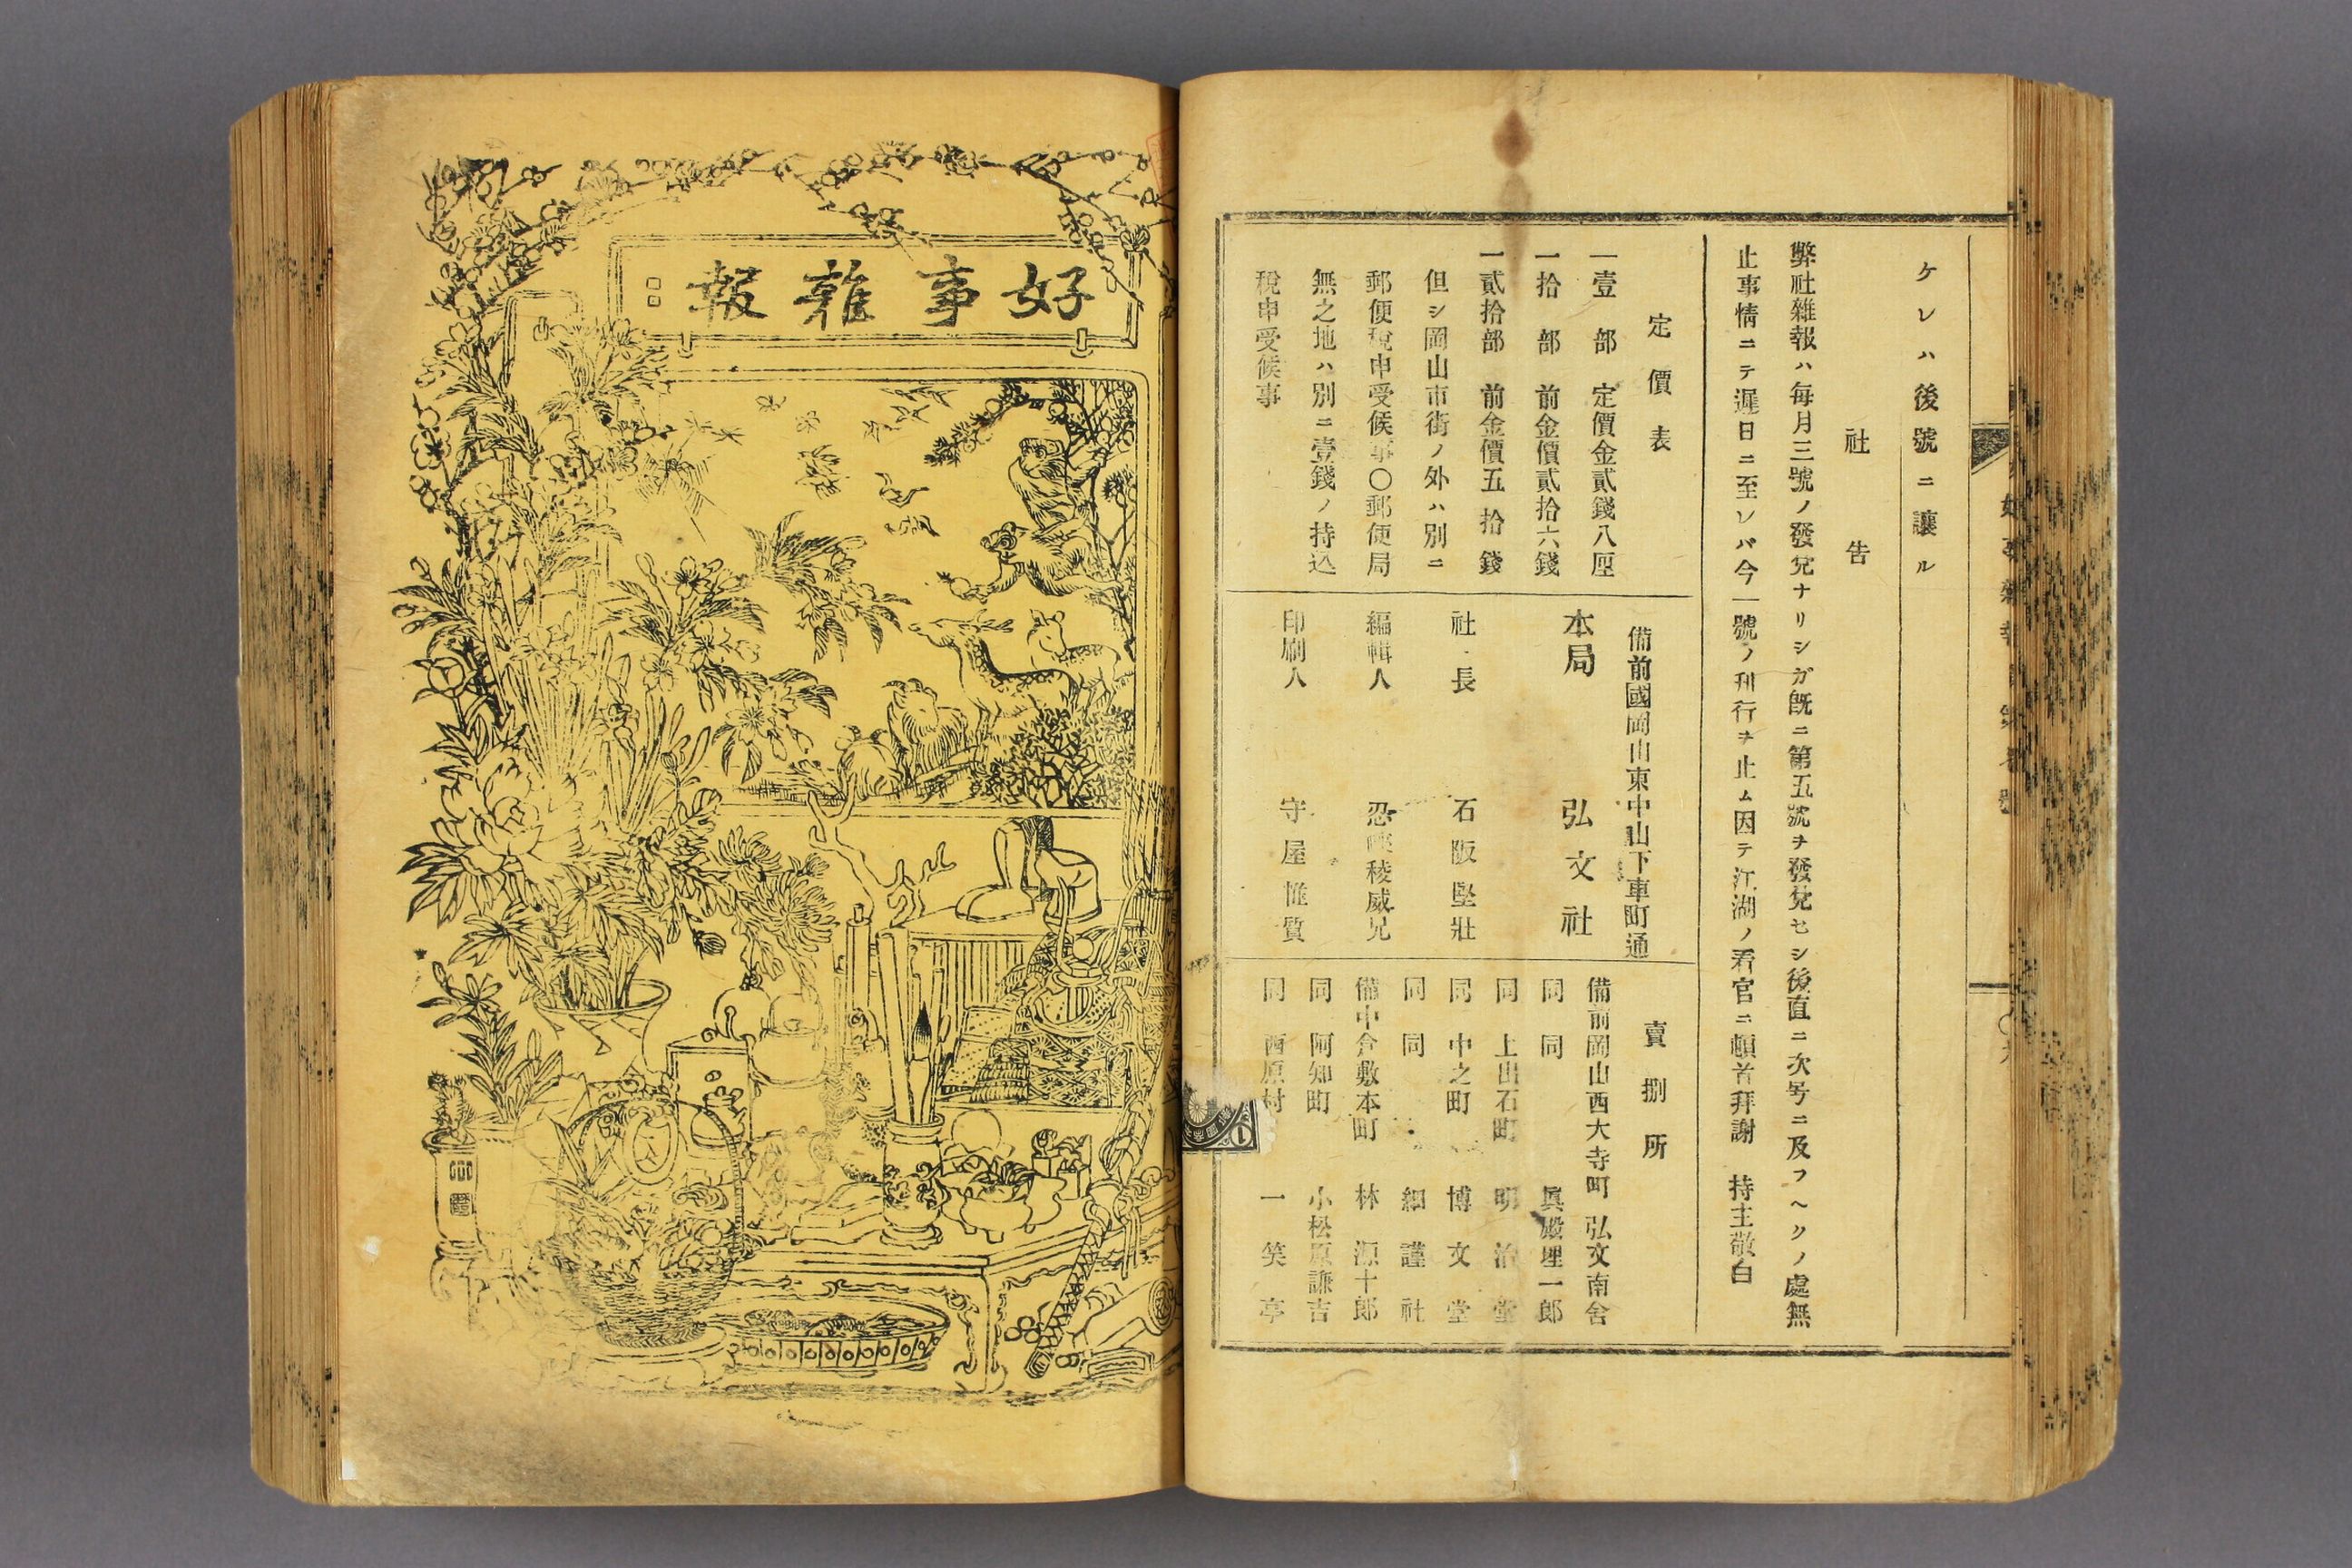 ケレハ後號ニ讓ル
社告
弊社雜報ハ每月三號ノ發兌ナリシガ既ニ第五號ヲ發兌セシ後直ニ次号ニ及フヘクノ處無
止事情ニテ遲日ニ至レバ今一號ノ刊行ヲ止ム因テ江湖ノ看官ニ頓首拜謝 持主敬白
定價表
一壹部 定價金貳錢八厘
一拾部 前金價貳拾六錢
一貳拾部 前金價五拾錢
但シ岡山市街ノ外ハ別ニ
郵便稅申受候事〇郵便局
無之地ハ別ニ壹錢ノ持込
稅申受候事
備前國岡山東中山下車町通
本局 弘文社
社長 石阪堅壯
編輯人 忍峽稜威兄
印刷人 守屋惟質
賣捌所
備前岡山西大寺町 弘文南舍
同 同 眞殿理一郎
同 上出石町 明治堂
同 中之町 博文堂
同 同 細謹社
備中倉敷本町 林源十郎
同 阿知町 小松原謙吉
同 西原村 一笑亭
好事雜報